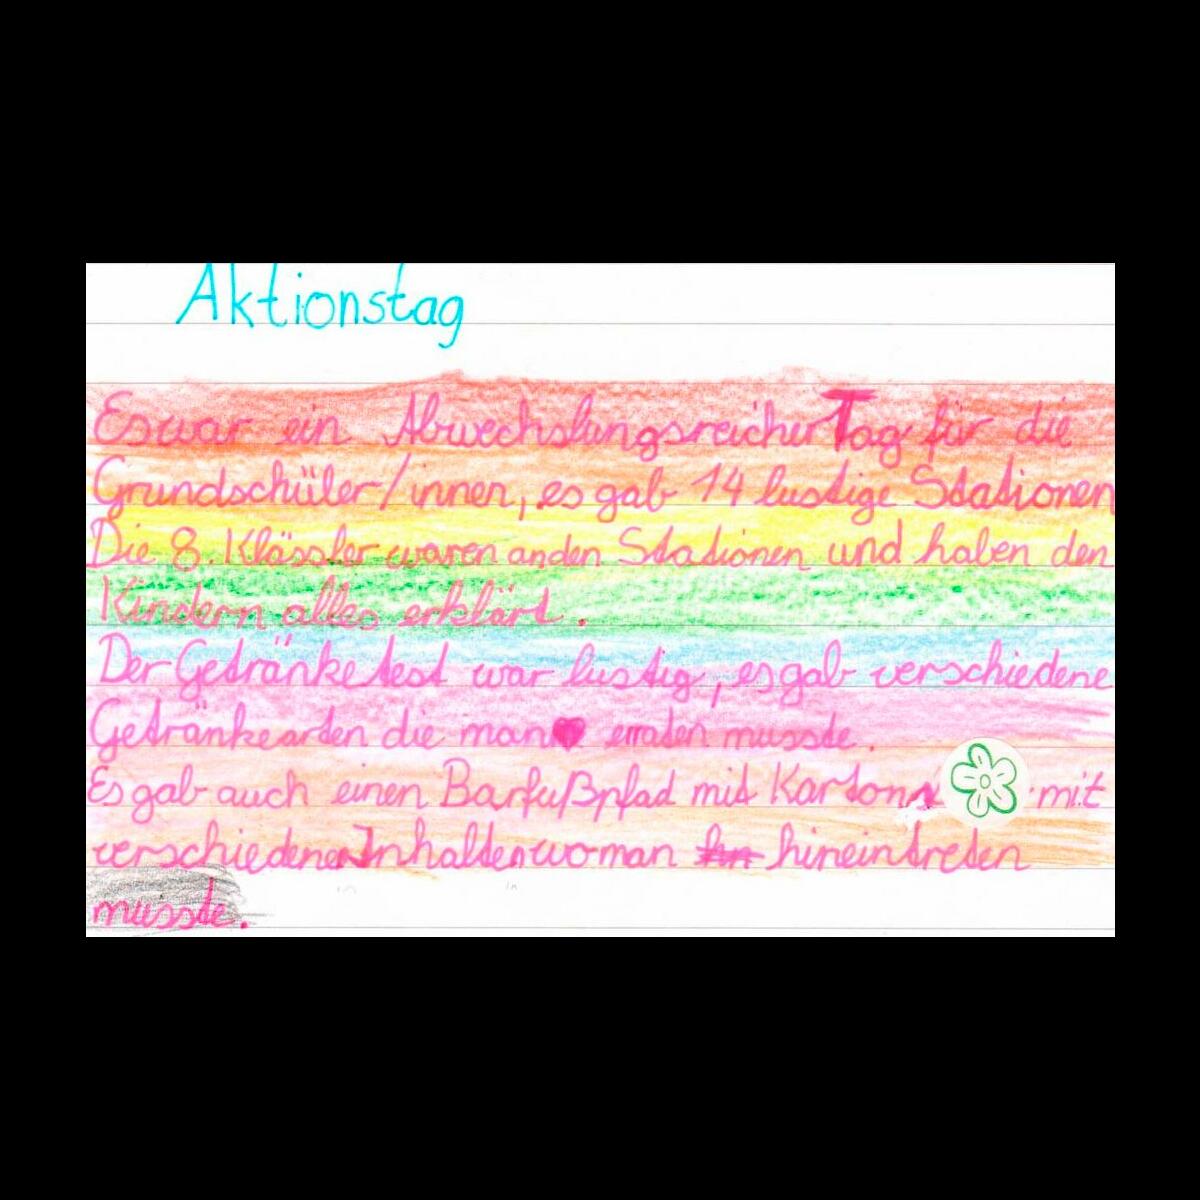 Aktionstag
Es war ein Abwechslungsreicher Tag für die
Grundschüler/innen, es gab 14 lustige Stationen
Die 8. Klässler waren an den Stationen und haben den
Kindern alles erklärt.
Der Getränketest war lustig, es gab verschiedene
Getränkearten die man erraten musste.
Es gab auch einen Barfußpfad mit Kartons mit
verschiedenen Inhalten wo man hineintreten
musste.